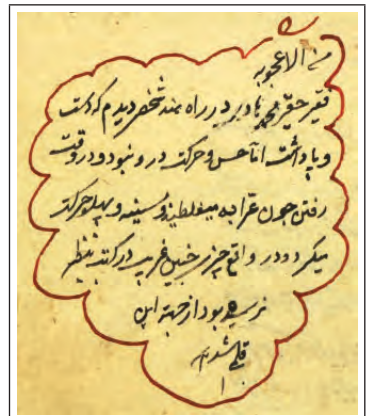 من الاعجوبه
فقیر حقیر محمد نادر در راه هند شخصی دیدم که دست
و پا داشت اما حس و حرکت در و نبود و در وقت
رفتن چون عرابه میغلطید و بسینه و پهلو حرکت
میکرد و در واقع چیزی خیلی غریب در کتب بنظر
نرسیده بود از جهة این
قلمی شد